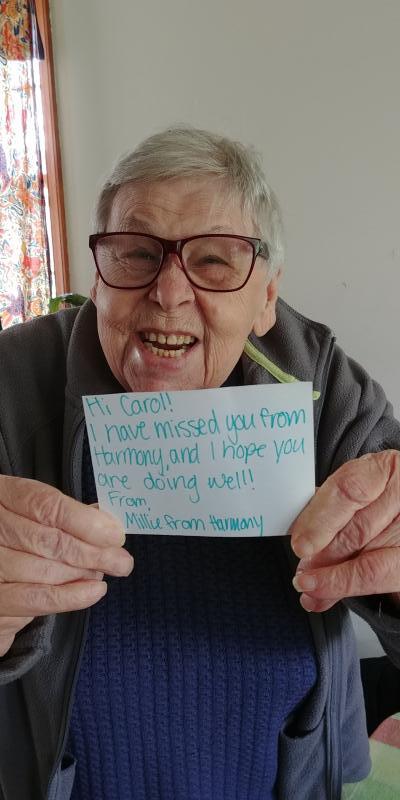 Hi Carol!
I have missed you from
Harmony, and I hope you
are doing well!!
From,
Millie from Harmony